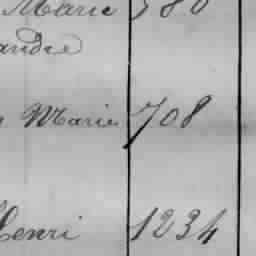 Marie 580
andre
Marie 708
Henri 1234